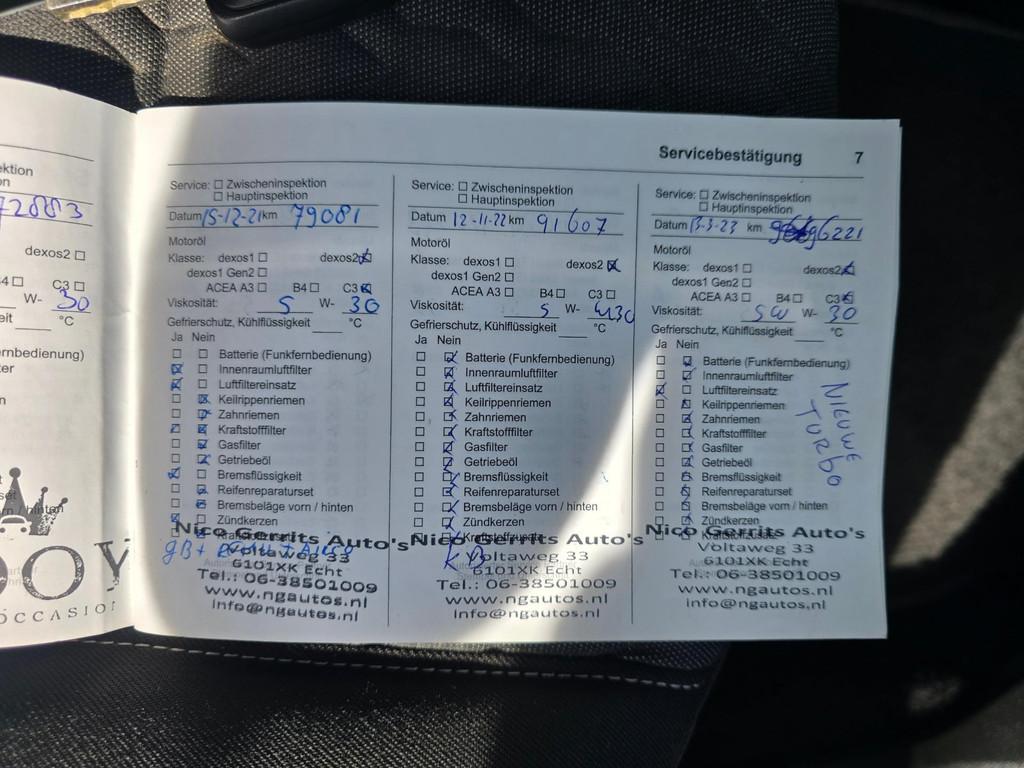 ktion
n
72883
dexos2
4 C3
W- 30
eit °C
rnbedienung)
er
n
rn / hinten
OOY
OCCASION
Servicebestätigung 7
Service: Zwischeninspektion
Hauptinspektion
Datum 15-12-21 km 79081
Motoröl
Klasse: dexos1 dexos2
dexos1 Gen2
ACEA A3 B4 C3
Viskosität: 5 W- 30
Gefrierschutz, Kühlflüssigkeit °C
Ja Nein
Batterie (Funkfernbedienung)
Innenraumluftfilter
Luftfiltereinsatz
Keilrippenriemen
Zahnriemen
Kraftstofffilter
Gasfilter
Getriebeöl
Bremsflüssigkeit
Reifenreparaturset
Bremsbeläge vorn / hinten
Zündkerzen
Nico Gerrits Auto's
GB +
Voltaweg 33
6101XK Echt
Tel.: 06-38501009
www.ngautos.nl
info@ngautos.nl
Service: Zwischeninspektion
Hauptinspektion
Datum 12-11-22 km 91607
Motoröl
Klasse: dexos1 dexos2
dexos1 Gen2
ACEA A3 B4 C3
Viskosität: 5 W- W30
Gefrierschutz, Kühlflüssigkeit °C
Ja Nein
Batterie (Funkfernbedienung)
Innenraumluftfilter
Luftfiltereinsatz
Keilrippenriemen
Zahnriemen
Kraftstofffilter
Gasfilter
Getriebeöl
Bremsflüssigkeit
Reifenreparaturset
Bremsbeläge vorn / hinten
Zündkerzen
Kraftstoffzusatz
Nico Gerrits Auto's
KB
Voltaweg 33
6101XK Echt
Tel.: 06-38501009
www.ngautos.nl
info@ngautos.nl
Service: Zwischeninspektion
Hauptinspektion
Datum 13-3-23 km 96221
Motoröl
Klasse: dexos1 dexos2
dexos1 Gen2
ACEA A3 B4 C3
Viskosität: 5W W- 30
Gefrierschutz, Kühlflüssigkeit °C
Ja Nein
Batterie (Funkfernbedienung)
Innenraumluftfilter
Luftfiltereinsatz
Keilrippenriemen
Zahnriemen
Kraftstofffilter
Gasfilter
Getriebeöl
Bremsflüssigkeit
Reifenreparaturset
Bremsbeläge vorn / hinten
Zündkerzen
NIEUWE
TURBO
Nico Gerrits Auto's
Voltaweg 33
6101XK Echt
Tel.: 06-38501009
www.ngautos.nl
info@ngautos.nl